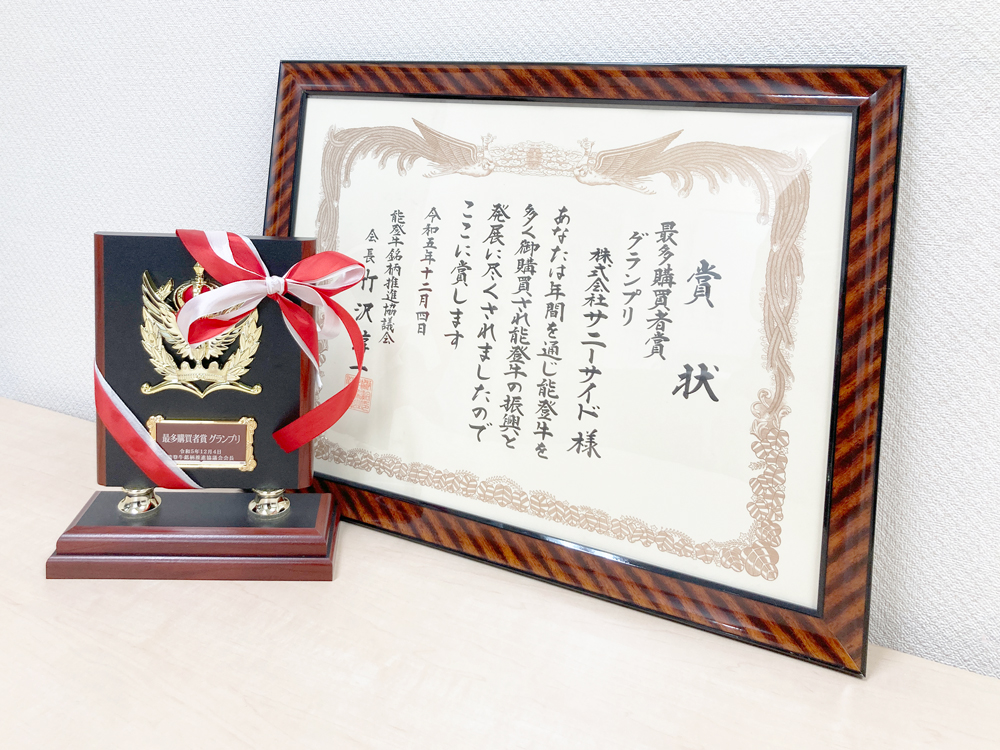 賞状
最多購買者賞
グランプリ
株式会社サニーサイド 様
あなたは年間を通じ能登牛を
多く御購買され能登牛の振興と
発展に尽くされましたので
ここに賞します
令和五年十二月四日
能登牛銘柄推進協議会
会長 竹沢淳一
最多購買者賞 グランプリ
令和5年12月4日
能登牛銘柄推進協議会会長